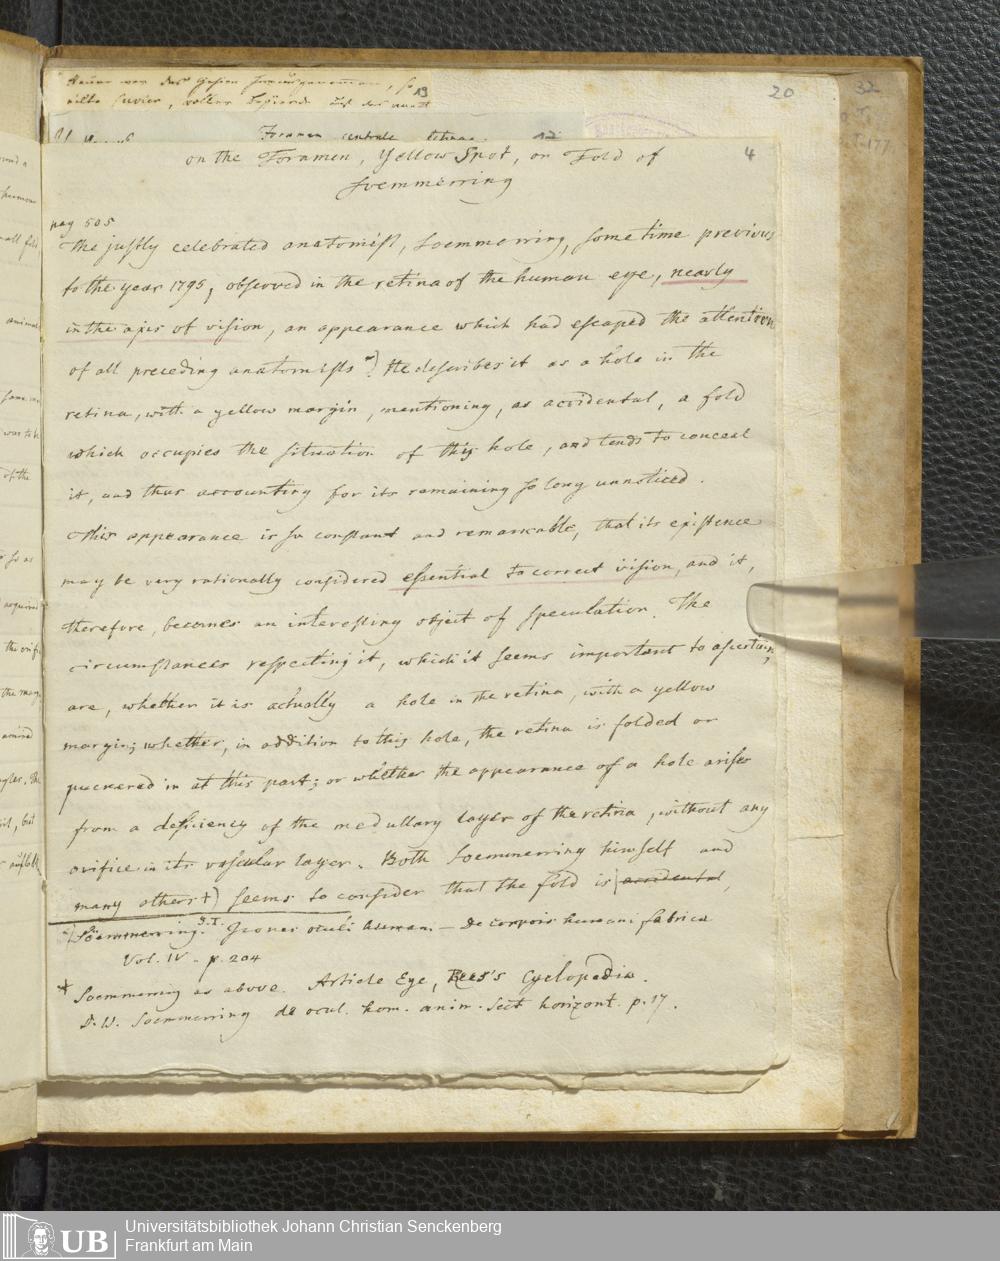 13
20
32
Foramen centrale retinae. 12
on the Foramen, Yellow Spot, or Fold of
4
Soemmerring
pag 505
The justly celebrated anatomist, Soemmerring, some time previous
to the year 1795, observed in the retina of the human eye, nearly
in the axis of vision, an appearance which had escaped the attention
of all preceding anatomists *) He describes it as a hole in the
retina, with a yellow margin, mentioning, as accidental, a fold
which occupies the situation of this hole, and tends to conceal
it, and thus accounting for its remaining so long unnoticed.
This appearance is so constant and remarkable, that its existence
may be very rationally considered essential to correct vision, and it,
therefore, becomes an interesting object of speculation. The
circumstances respecting it, which it seems important to ascertain,
are, whether it is actually a hole in the retina, with a yellow
margin; whether, in addition to this hole, the retina is folded or
puckered in at this part; or whether the appearance of a hole arises
from a deficiency of the medullary layer of the retina, without any
orifice in its vascular layer. Both Soemmerring himself and
many others †) seems to consider that the fold is (accidental,
*) Soemmerring. S.T. Icones oculi humani – De corporis humani fabrica
Vol. IV – p. 204
† Soemmerring as above. Article Eye, Rees's Cyclopedia.
D. W. Soemmerring de ocul. hom. anim. sect horizont. p. 17.
UB
Universitätsbibliothek Johann Christian Senckenberg
Frankfurt am Main